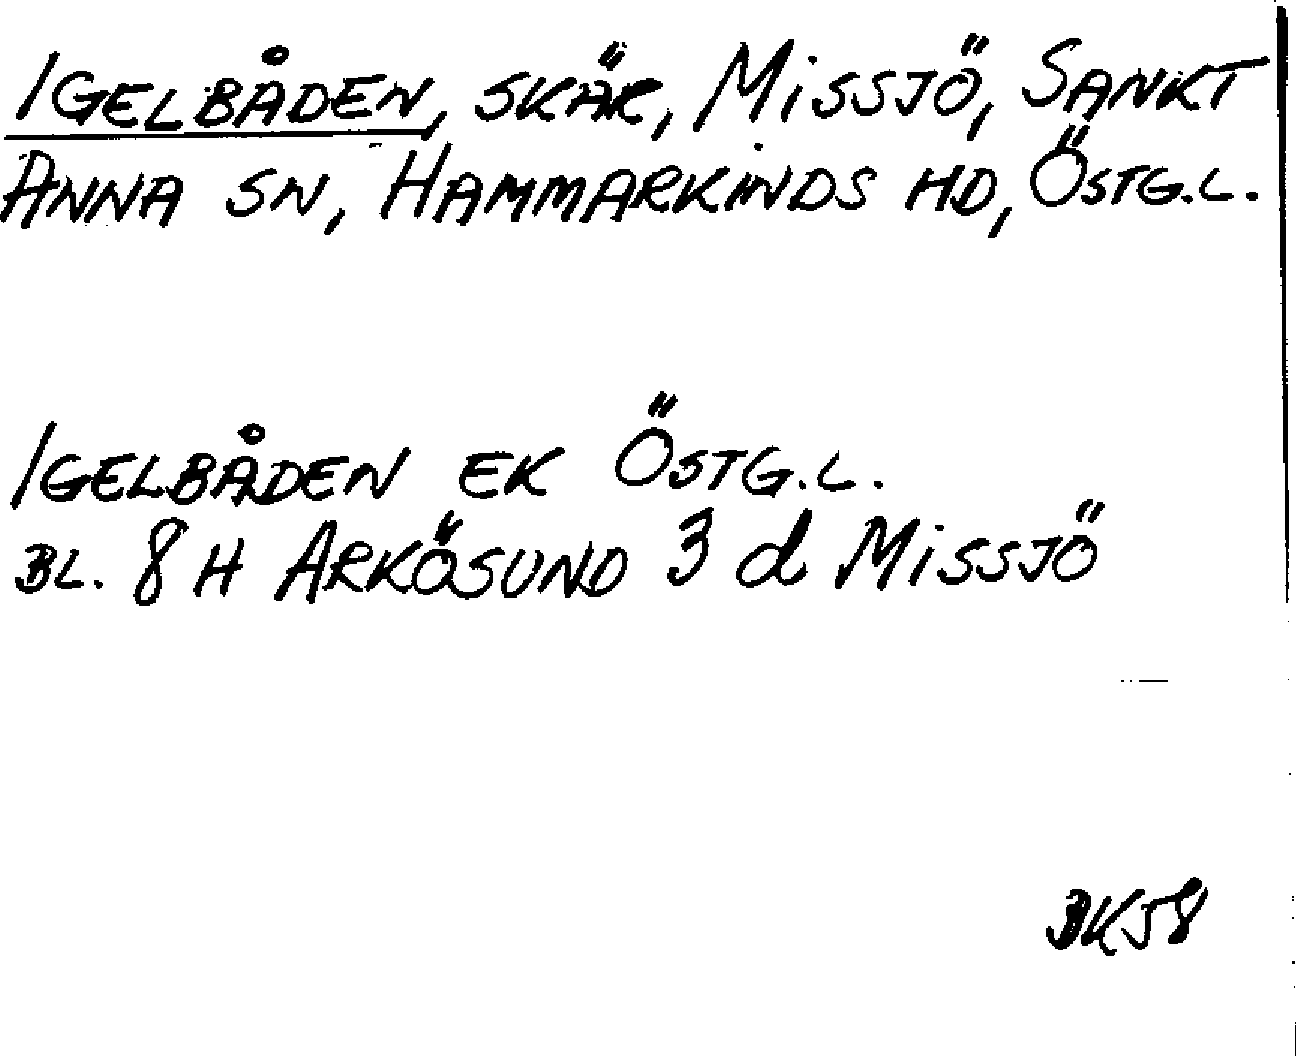 IGELBÅDEN, SKÄR, MISSJÖ, SANKT
ANNA SN, HAMMARKINDS HD, ÖSTG.L.
IGELBÅDEN EK ÖSTG.L.
BL. 8 H ARKÖSUND 3 d MISSJÖ
BK58